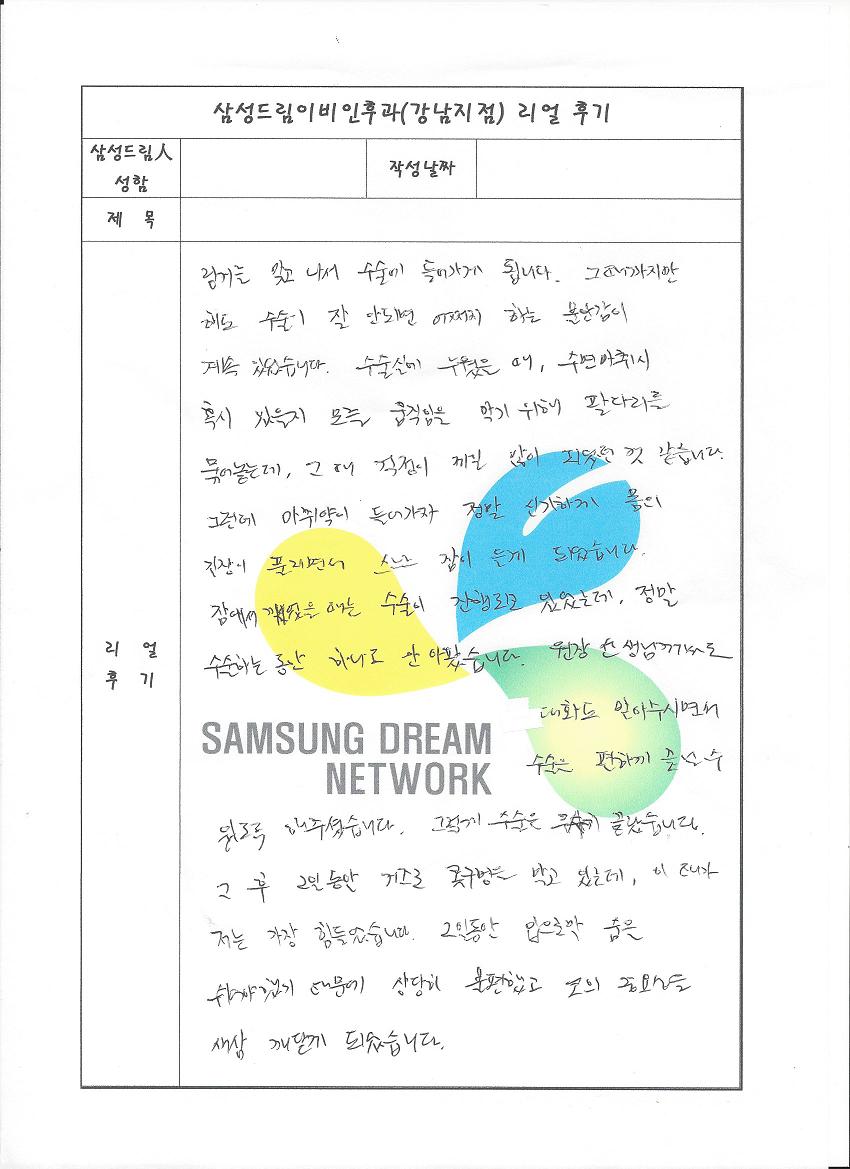 삼성드림이비인후과(강남지점) 리얼 후기
삼성드림人
성함
작성날짜
제 목
링거를 맞고 나서 수술에 들어가게 됩니다. 그때까지만
해도 수술이 잘 안되면 어쩌지 하는 불안감이
계속 있었습니다. 수술실에 누웠을 때, 수면마취시
혹시 있을지 모를 움직임을 막기 위해 팔다리를
묶어놓는데, 그 때 걱정이 제일 많이 되었던 것 같습니다.
그런데 마취약이 들어가자 정말 신기하게 몸의
긴장이 풀리면서 스르르 잠이 들게 되었습니다.
잠에서 깨었을 때는 수술이 진행되고 있었는데, 정말
수술하는 동안 하나도 안 아팠습니다. 원장 선생님께서도
대화도 많이 시면서
수술은 편하게 수
있도록 해주셨습니다. 그렇게 수술은 끝났습니다.
그 후 2일동안 거즈로 콧구멍을 막고 있는데, 이 때가
저는 가장 힘들었습니다. 2일동안 입으로만 숨을
쉬어야했기 때문에 상당히 불편했고 코의 중요성을
새삼 깨닫게 되었습니다.
리 얼
후 기
SAMSUNG DREAM
NETWORK